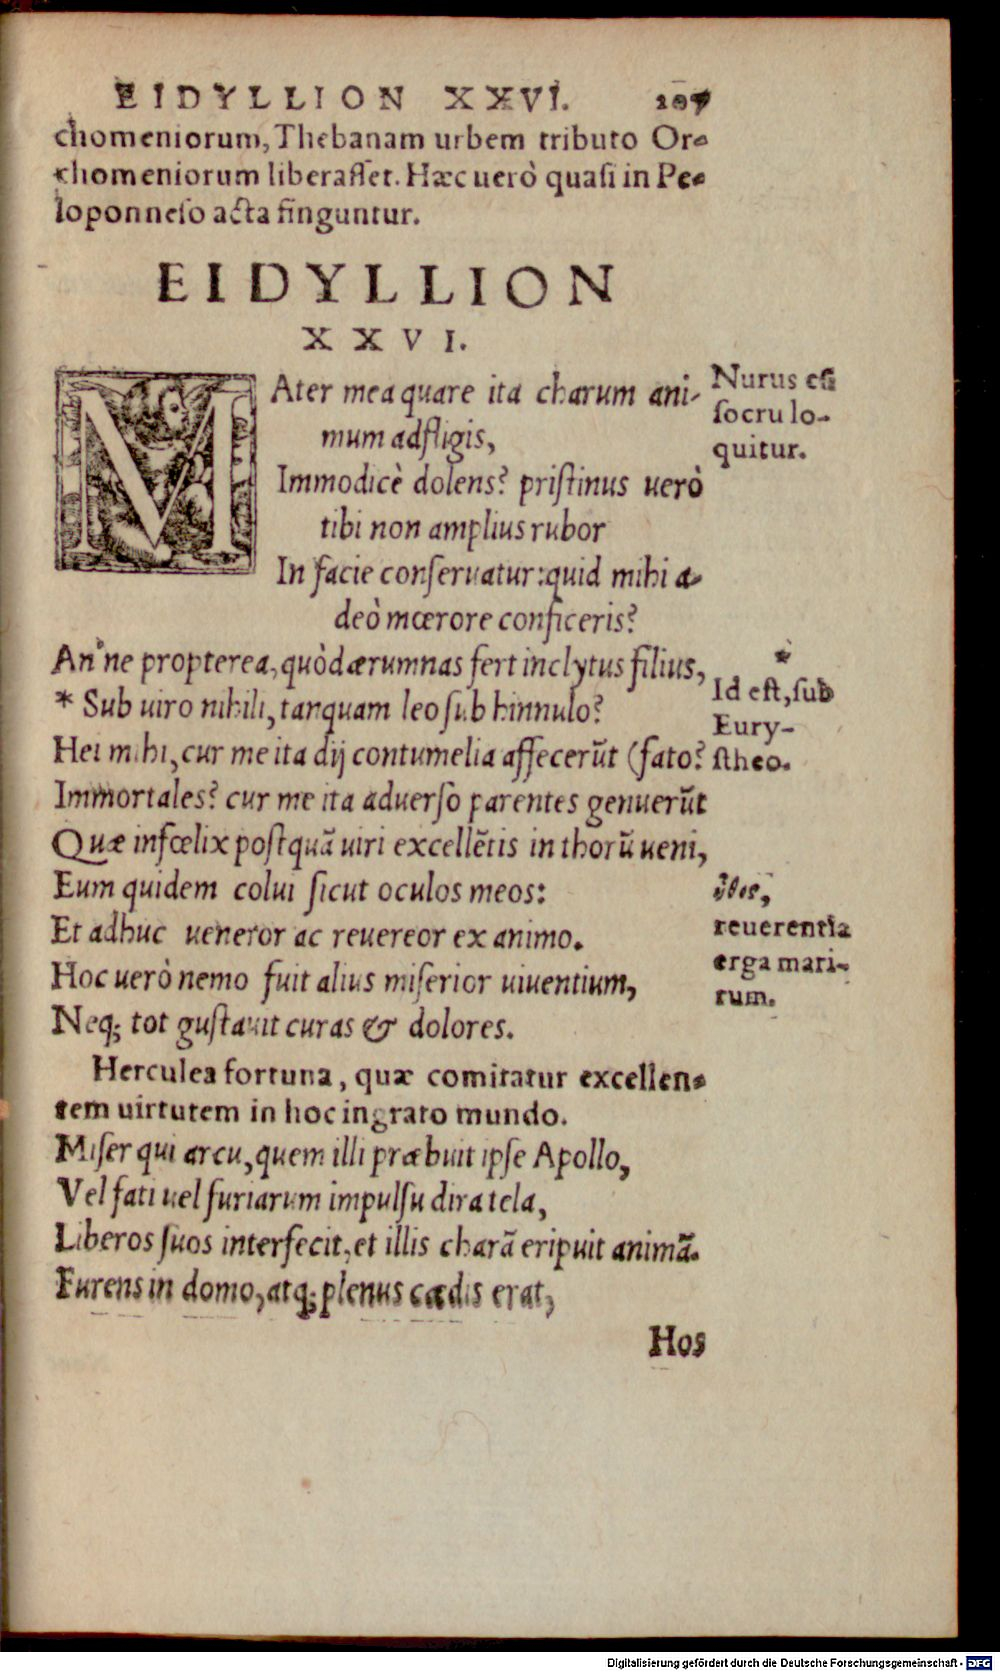 EIDYLLION XXVI. 207
chomeniorum, Thebanam urbem tributo Or-
chomeniorum liberaſſet. Hæc uerò quaſi in Pe-
loponneſo acta finguntur.
EIDYLLION
XXVI.
MAter mea quare ita charum ani-
mum adfligis,
Immodicè dolens? priſtinus uerò
tibi non amplius rubor
In facie conſeruatur: quid mihi a-
deò mœrore conficeris?
Nurus cũ
ſocru lo-
quitur.
An'ne propterea, quòd ærumnas fert inclytus filius,
* Sub uiro nihili, tanquam leo ſub hinnulo?
Hei mihi, cur me ita dij contumelia affecerũt (fato?
Immortales? cur me ita aduerſo parentes genuerũt
Quæ infœlix poſtquã uiri excellẽtis in thorũ ueni,
Eum quidem colui ſicut oculos meos:
Et adhuc ueneror ac reuereor ex animo.
Hoc uerò nemo fuit alius miſerior uiuentium,
Neq; tot guſtauit curas & dolores.
*
Id eſt, ſub
Eury-
ſtheo.
reuerentia
erga mari-
tum.
Herculea fortuna, quæ comitatur excellen-
tem uirtutem in hoc ingrato mundo.
Miſer qui arcu, quem illi præbuit ipſe Apollo,
Vel fati uel furiarum impulſu dira tela,
Liberos ſuos interfecit, et illis charã eripuit animã.
Furens in domo, atq; plenus cædis erat,
Hos
Digitalisierung gefördert durch die Deutsche Forschungsgemeinschaft - DFG